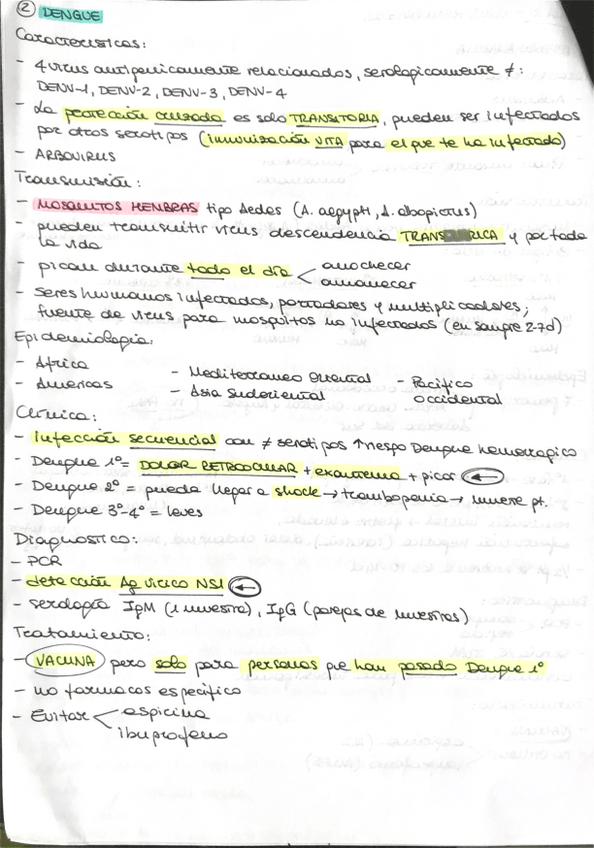 ② DENGUE
Características:
- 4 virus antigenicamente relacionados, serologicamente ≠:
DENV-1, DENV-2, DENV-3, DENV-4
- La protección cruzada es solo TRANSITORIA, pueden ser infectados
por otros serotipos (inmunización VITA para el que te ha infectado)
- ARBOVIRUS
Transmisión:
- MOSQUITOS HEMBRAS tipo Aedes (A. aegypti, A. albopictus)
- pueden transmitir virus descendencia y por toda
la vida
- pican durante todo el día < anochecer
amanecer
- Seres humanos infectados, portadores y multiplicadores;
fuente de virus para mosquitos no infectados (en sangre 2-7d)
Epidemiología:
- Africa
- Mediterraneo Oriental - Pacífico
- Americas
- Asia Sudoriental occidental
Clínica:
- Infección secuencial con ≠ serotipos ↑ riesgo Dengue hemorragico
- Dengue 1º = DOLOR RETROOCULAR + exantema + picor ←
- Dengue 2º = puede llegar a shock → trombopenia → muere pt.
- Dengue 3º-4º = leves
Diagnostico:
- PCR
- detección Ag vírico NS1 ←
- serología IgM (1 muestra), IgG (parejas de muestras)
Tratamiento:
- VACUNA pero solo para personas que han pasado Dengue 1º
- no farmacos especifico
- Evitar < aspirina
ibuprofeno